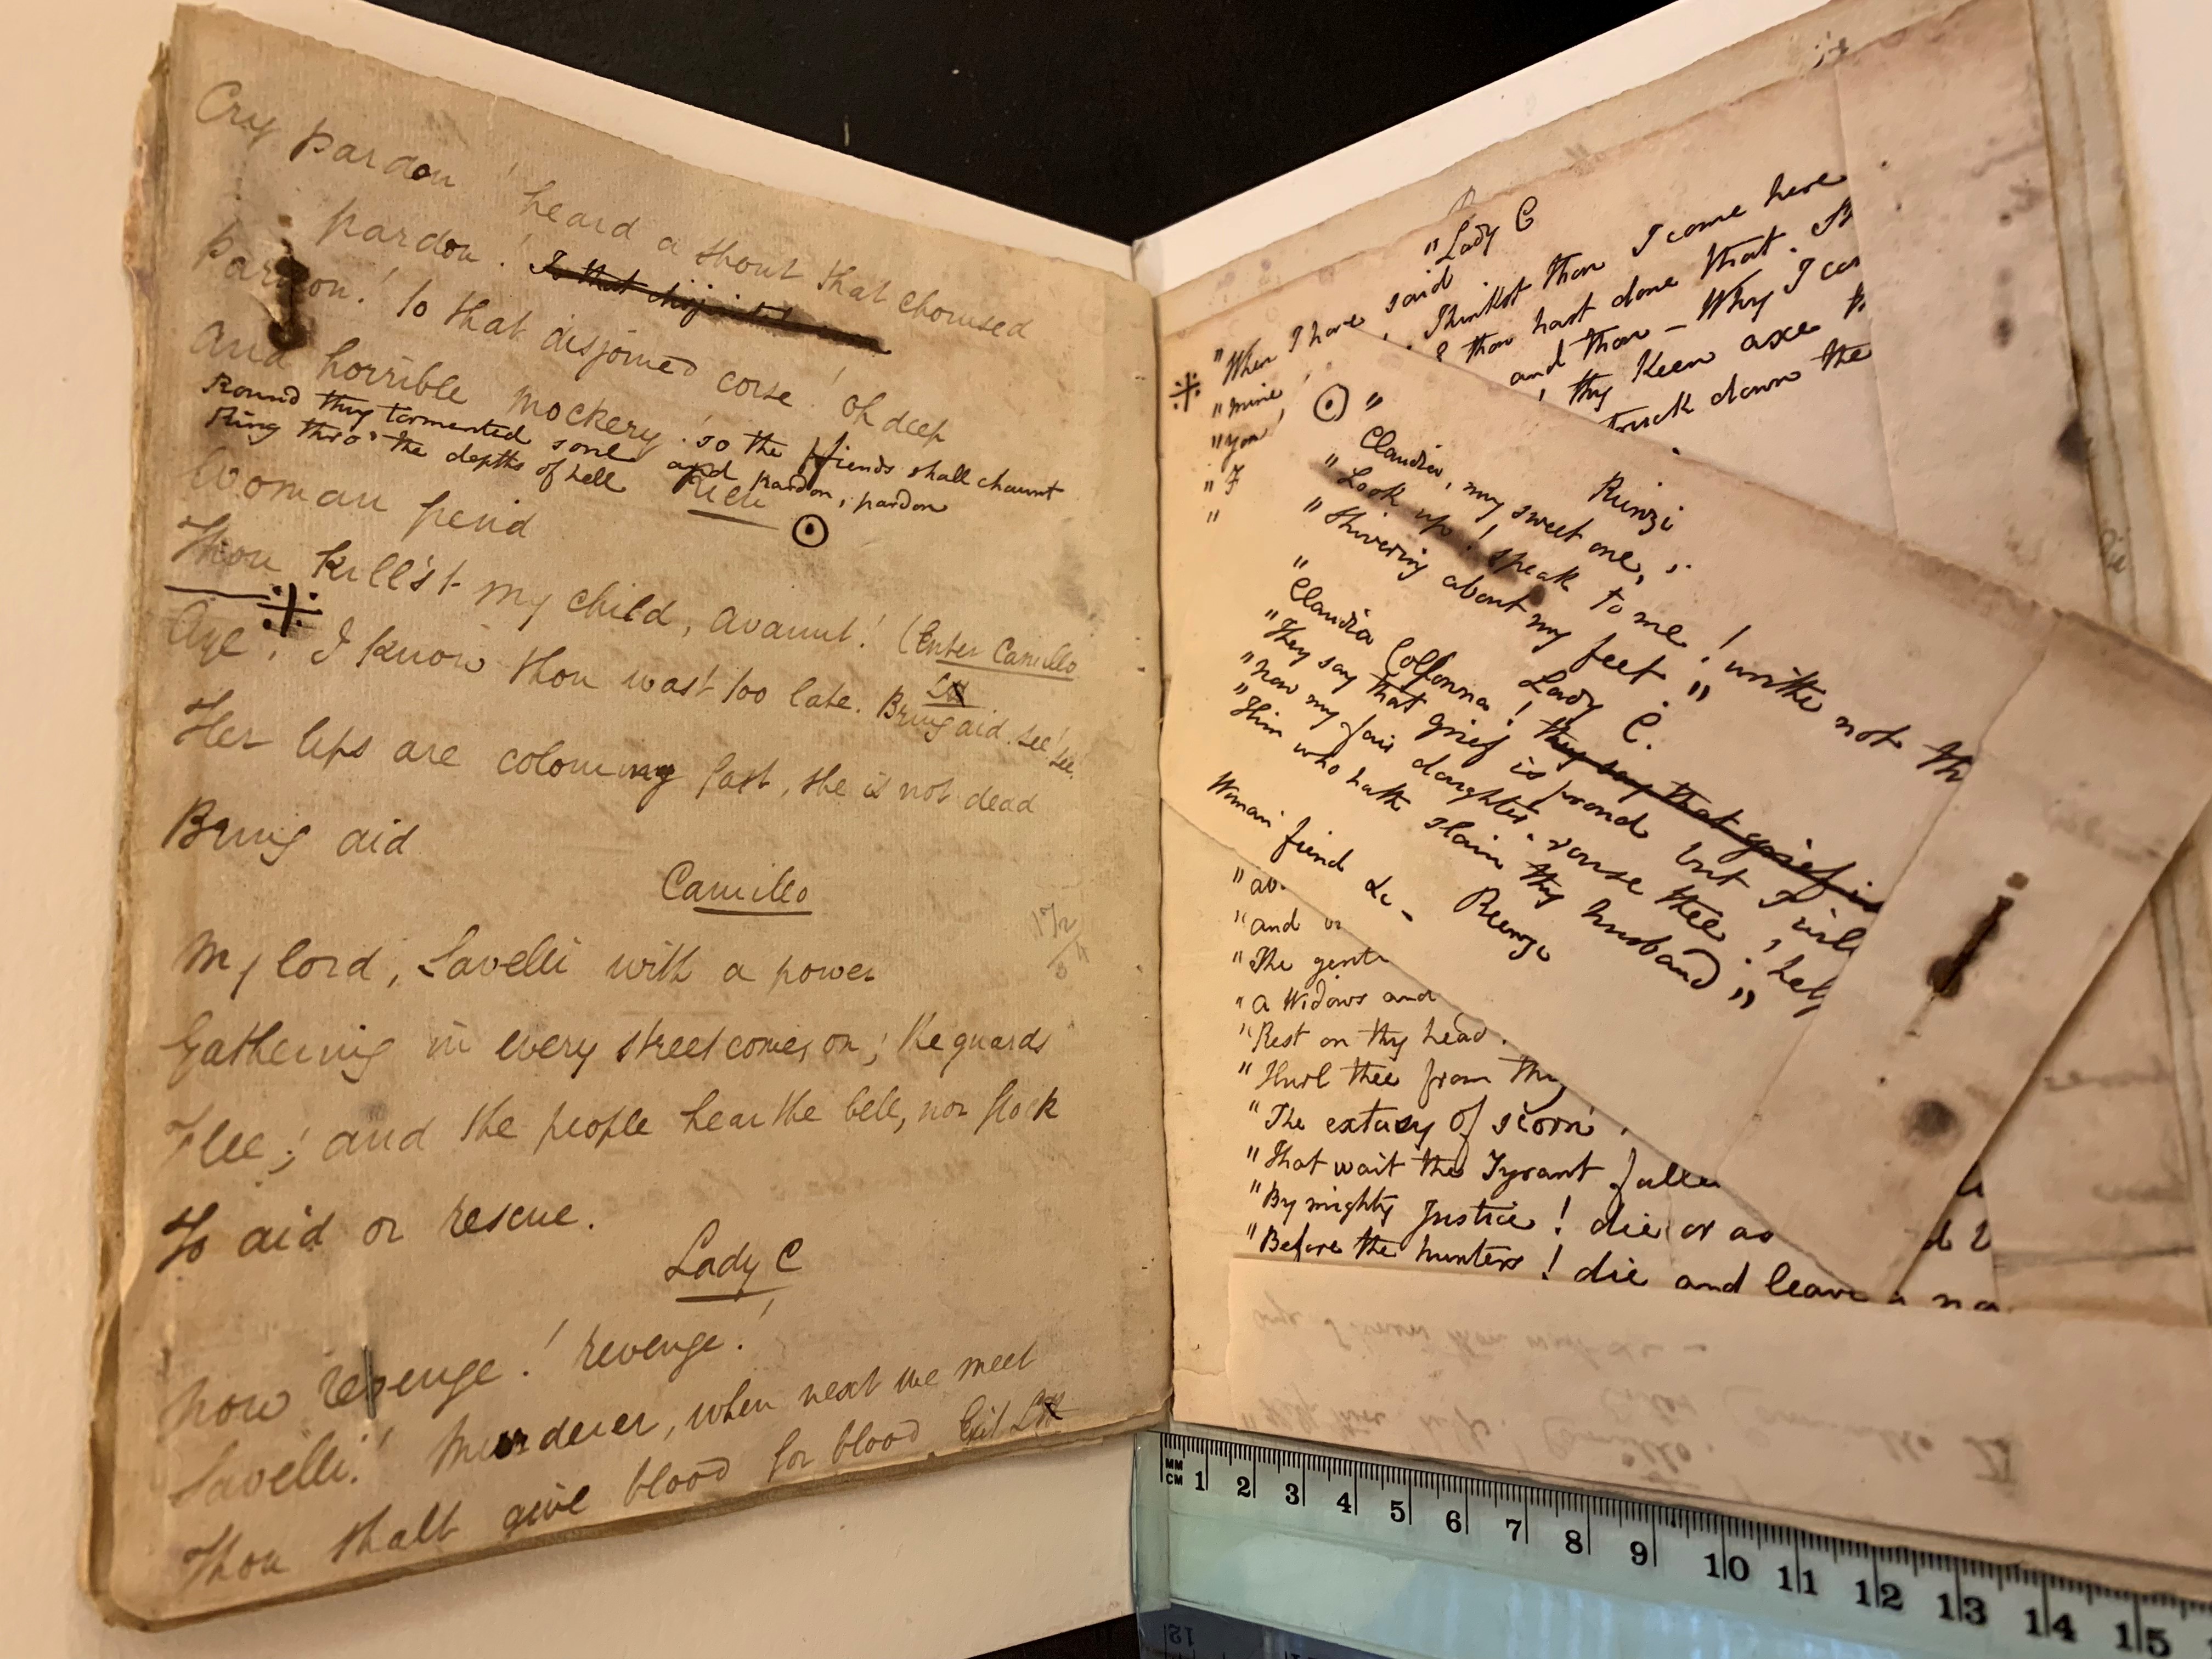 Cry pardon! heard a shout that chorused
pardon! To that
Pardon! to that disjoined corse! Oh deep
And horrible mockery! so the fiends shall chaunt
Round thy tormented soul and pardon, pardon
Ring thro' the depths of hell
Rien ⊙
Woman fiend
Thou kill'st my child, avaunt! (Enter Camillo
Aye, ※ I know thou wast too late. Bring aid. See! see!
Her lips are colouring fast, she is not dead
Bring aid
Camillo
My lord, Savelli with a power
Gathering in every street comes on; the guards
Flee; and the people hear the bell, nor flock
To aid or rescue.
Lady C
now revenge! revenge!
Savelli! Murderer, when next we meet
Thou shalt give blood for blood. Exit LC
"Lady C
"When I have said
※ "mine , . Thinkst thou I come here
"you ! & thou hast done that.
"I and thou – Why I
" , thy keen axe
struck down the
⊙ "
Rienzi
Claudia, my sweet one,
"Look up! speak to me! writhe not
"Shivering about my feet"
" Lady C.
Claudia Colonna! they say that grief is
"They say that grief is proud but I
"now my fair daughter. rouse thee,
"Him who hath slain thy husband"
Woman fiend &c – Rienzi
"and
"The
"a Widows and
"Rest on thy head.
"Hurl thee from thy
"The extacy of scorn.
"That wait the Tyrant
"By mighty Justice! die or as
"Before the hunters! die and leave a
MM
CM 1 2 3 4 5 6 7 8 9 10 11 12 13 14 15
12